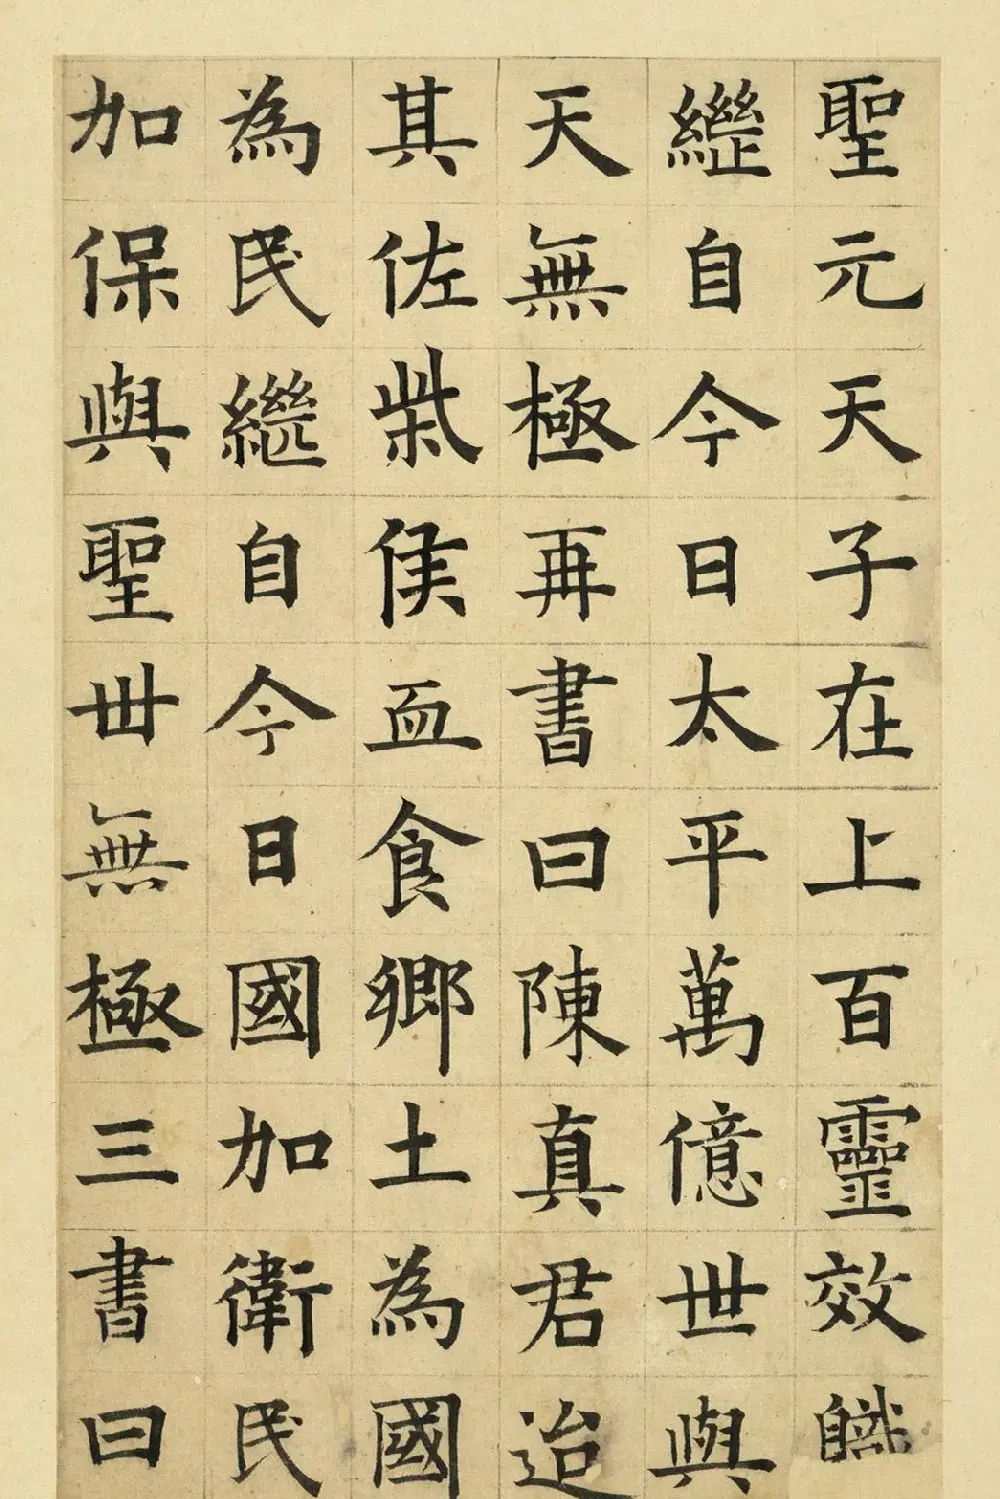 聖元天子在上百靈效軄
繼自今日太平萬億世與
天無極再書曰陳真君迨
其佐柴侯血食鄉土為國
為民繼自今日國加衛民
加保與聖丗無極三書曰